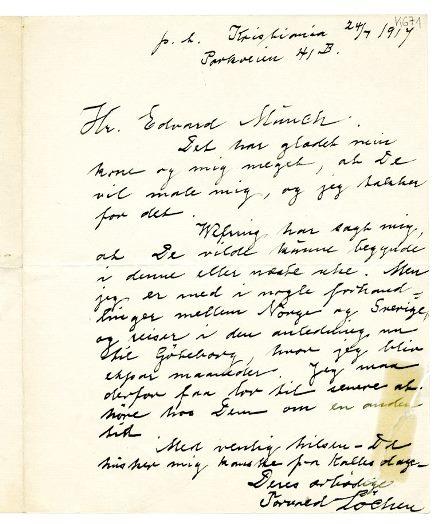 K671
p. t. Kristiania 24/7 1917
Parkveien 41 B.
Hr. Edvard Münch.
Det har glædet min
kone og mig meget, at De
vil male mig, og jeg takker
for det.
Wefring har sagt mig,
at De vilde kunne begynde
i denne eller næste uke. Men
jeg er med i nogle forhand-
linger mellem Norge og Sverige,
og reiser i den anledning nu
til Göteborg, hvor jeg blir
et par maaneder. Jeg maa
derfor faa lov til senere at
höre hos Dem om en anden
tid.
Med venlig hilsen – De
husker mig kanske fra Kalles dage –
Deres ærbödige
Torvald Löchen